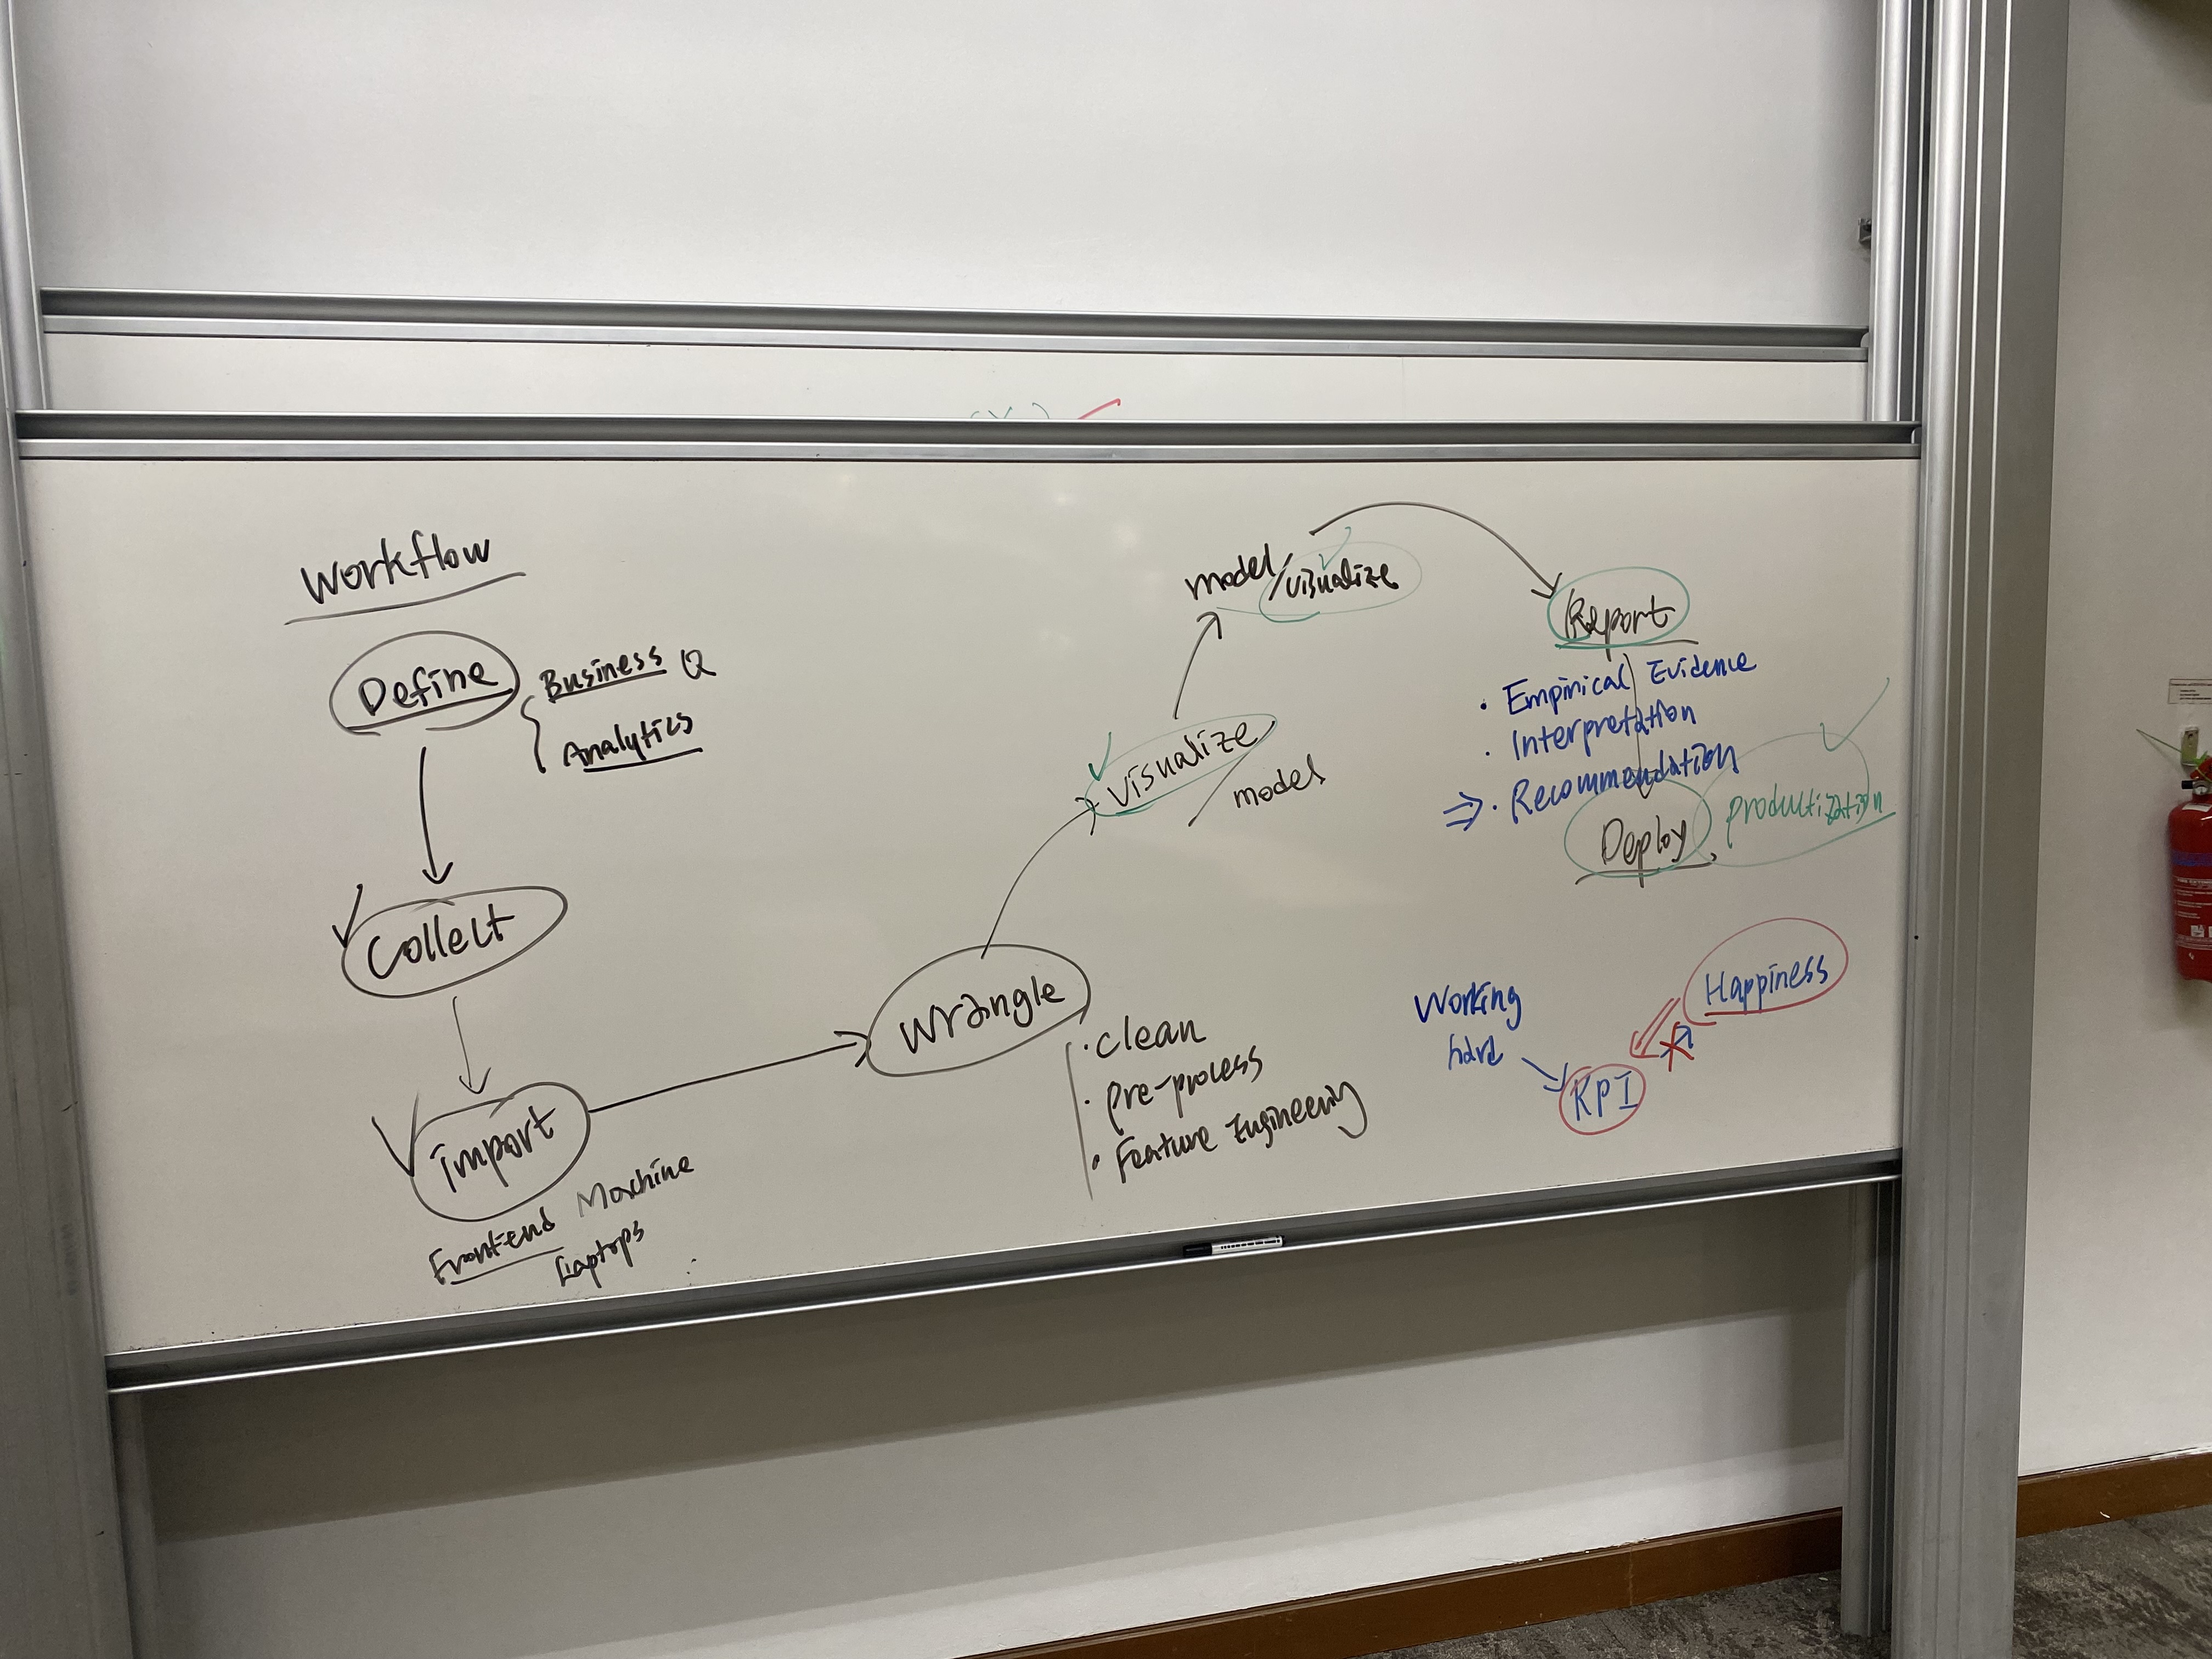 Workflow
Define
Business Q
Analytics
Collect
import
Frontend Machine
Laptops
Wrangle
· clean
· pre-process
· Feature Engineering
visualize
/ model
model/visualize
Report
· Empirical Evidence
· Interpretation
⇒ · Recommendation
Deploy, productization
Working
hard
KPI
Happiness